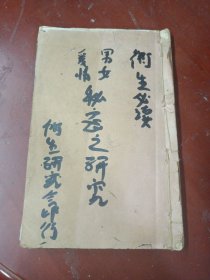 衛生必讀
男女
愛情
秘密之研究
衛生研究会印行